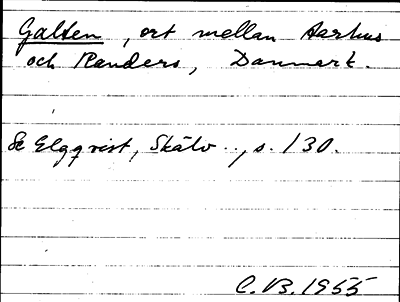 Galten, ort mellan Aarhus
och Randers, Danmark.
Se Elgqvist, Skälv.., s. 130.
C.B. 1955